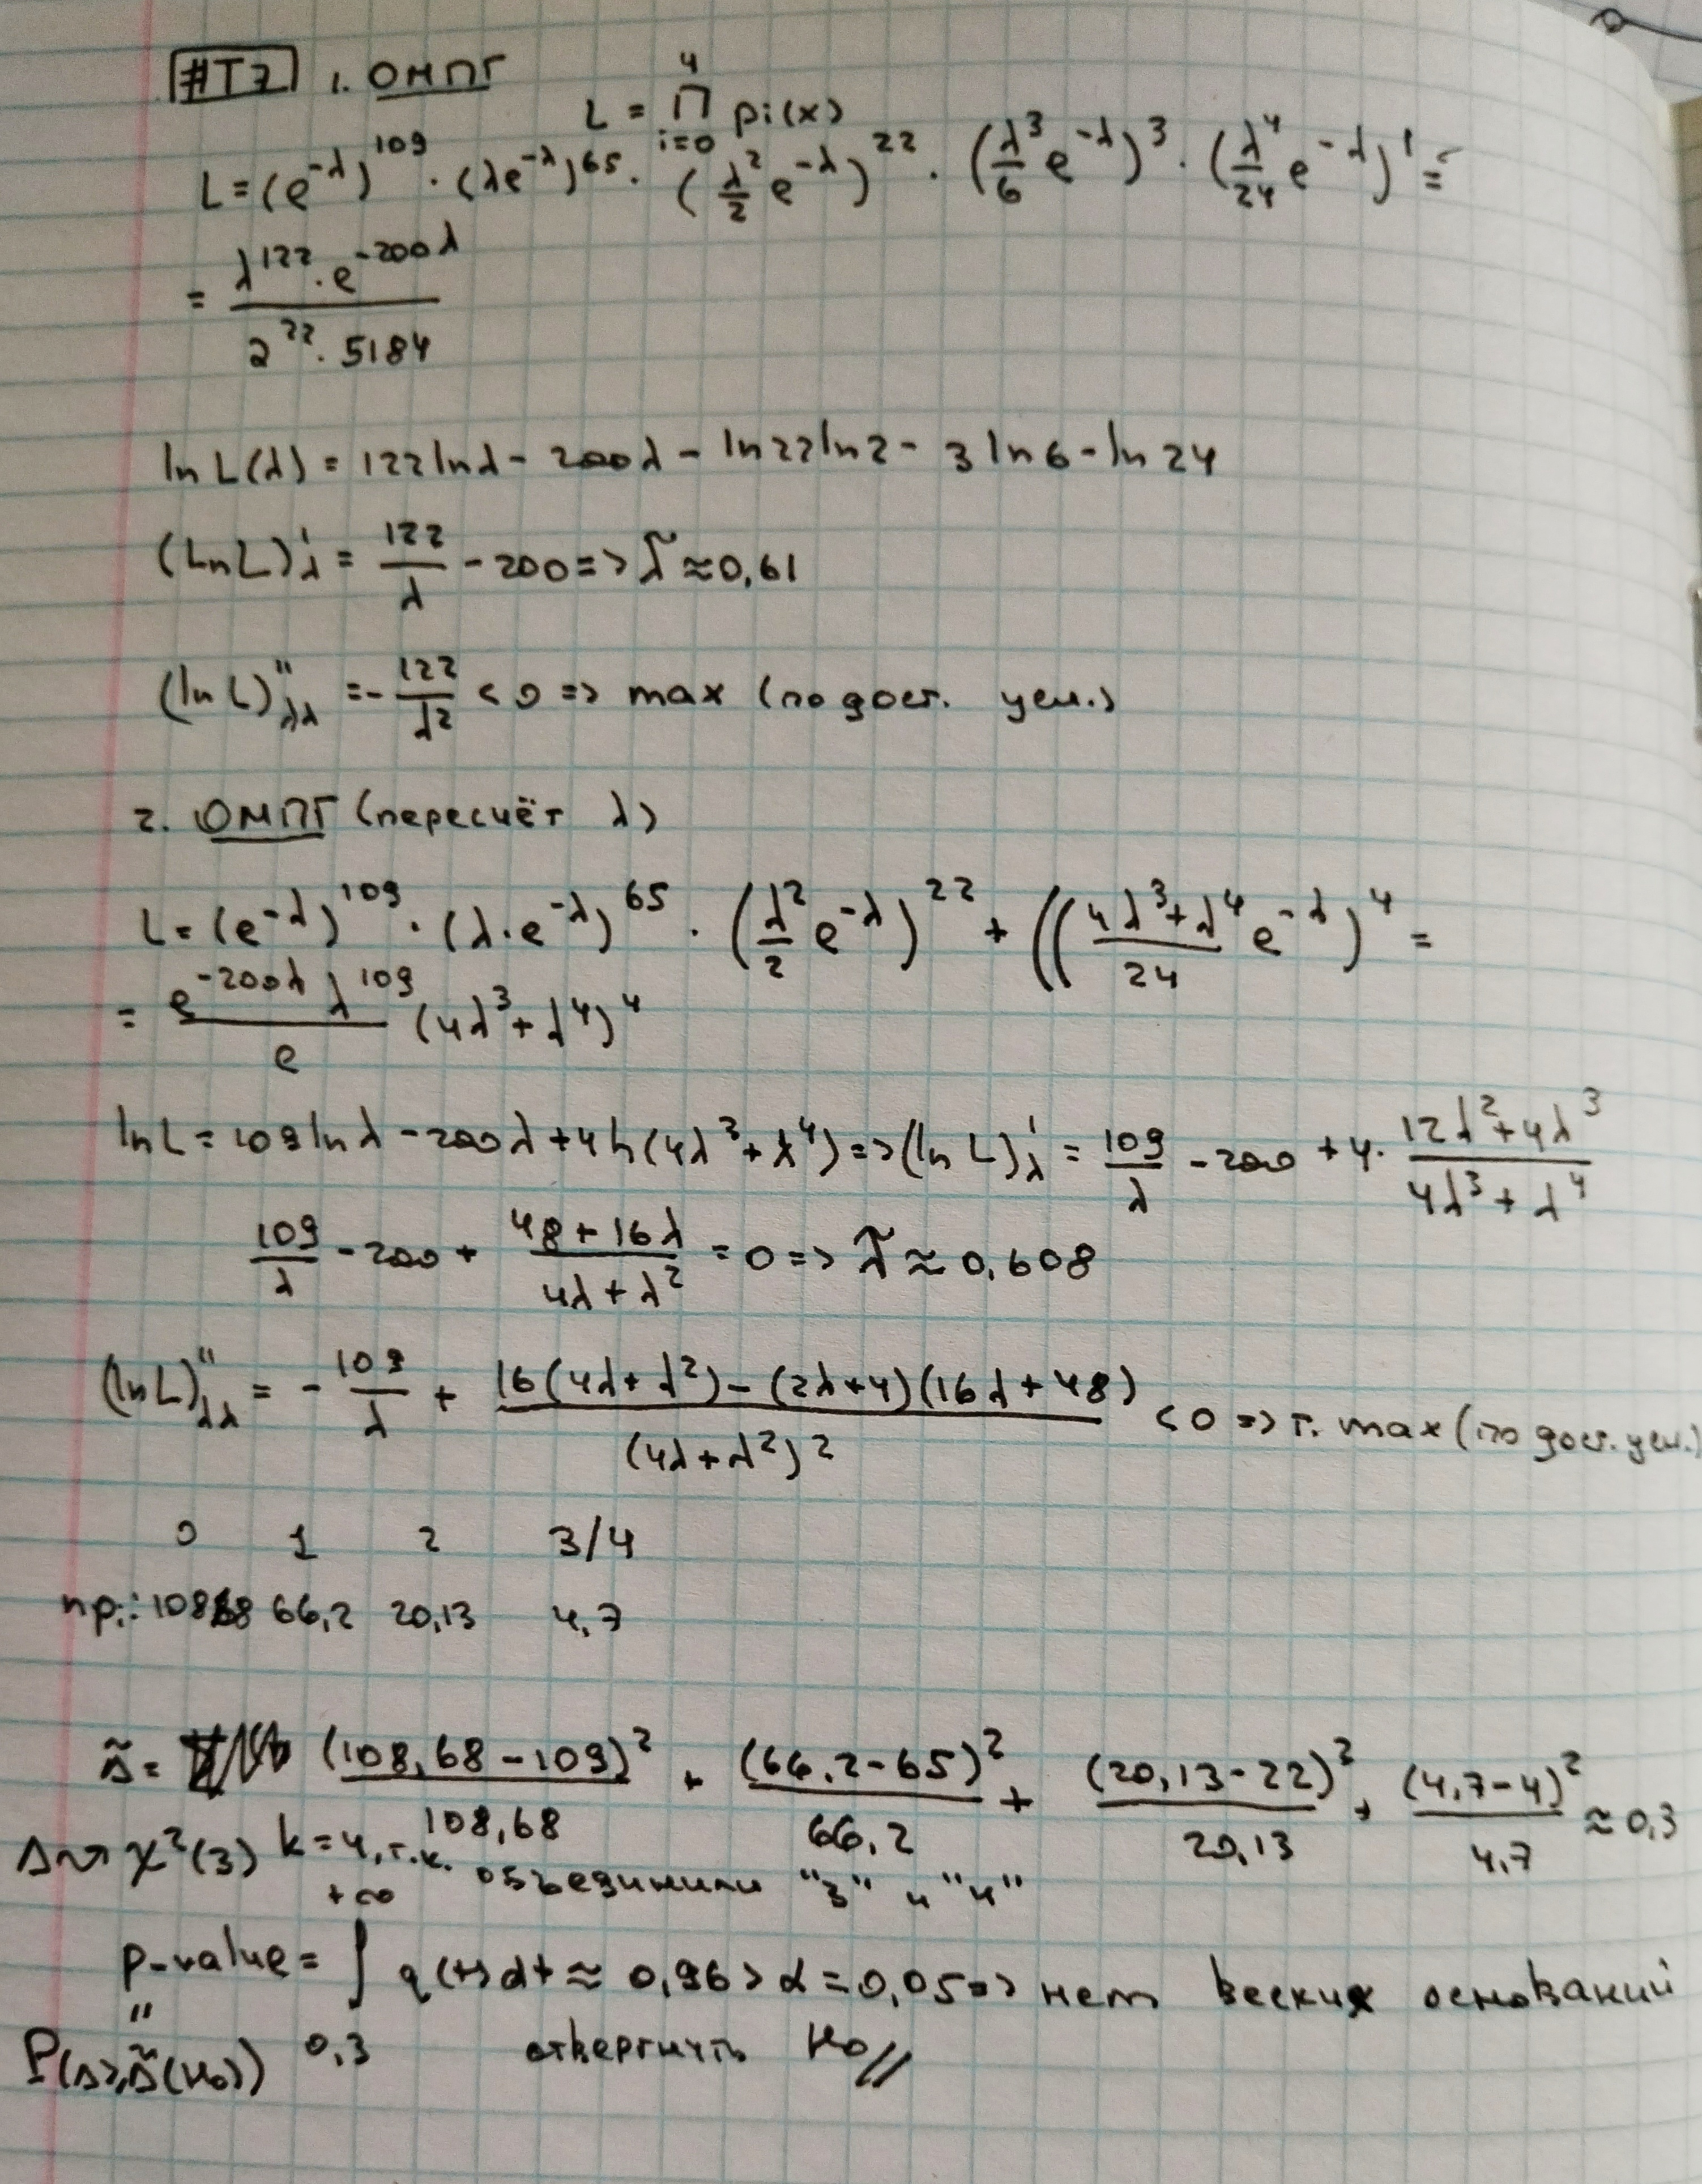 #T7 1. ОМПГ
L = ∏_{i=0}^{4} pi(x)
L = (e^{-λ})^{109} · (λe^{-λ})^{65} · (λ²/2 e^{-λ})^{22} · (λ³/6 e^{-λ})^3 · (λ⁴/24 e^{-λ})^1 =
= λ^{122} · e^{-200λ} / 2^{22} · 5184
ln L(λ) = 122lnλ - 200λ - ln22ln2 - 3 ln6 - ln 24
(LnL)'_λ = 122/λ - 200 => λ̃ ≈ 0,61
(ln L)''_{λλ} = - 122/λ² < 0 => max (по дост. усл.)
2. ОМПГ (пересчёт λ)
L = (e^{-λ})^{109} · (λ·e^{-λ})^{65} · (λ²/2 e^{-λ})^{22} + ((4λ³+λ⁴/24 e^{-λ})^4 =
= e^{-200λ} λ^{109} / e (4λ³+λ⁴)^4
lnL = 109lnλ - 200λ + 4ln(4λ³+λ⁴) => (ln L)'_λ = 109/λ - 200 + 4 · 12λ²+4λ³ / 4λ³+λ⁴
109/λ - 200 + 48+16λ / 4λ+λ² = 0 => λ̃ ≈ 0,608
(lnL)''_{λλ} = - 109/λ + 16(4λ+λ²) - (2λ+4)(16λ+48) / (4λ+λ²)² < 0 => т. max (по дост. усл.)
0 1 2 3/4
npᵢ: 108,68 66,2 20,13 4,7
Δ̃ = (108,68-109)²/108,68 + (66,2-65)²/66,2 + (20,13-22)²/20,13 + (4,7-4)²/4,7 ≈ 0,3
Δ ~ χ²(3) k=4, т.к. объединили "3" и "4"
p-value = ∫_{0,3}^{+∞} q(t)dt ≈ 0,96 > α = 0,05 => нет веских оснований
"
P(Δ≥Δ̃|H₀) отвергнуть H₀//